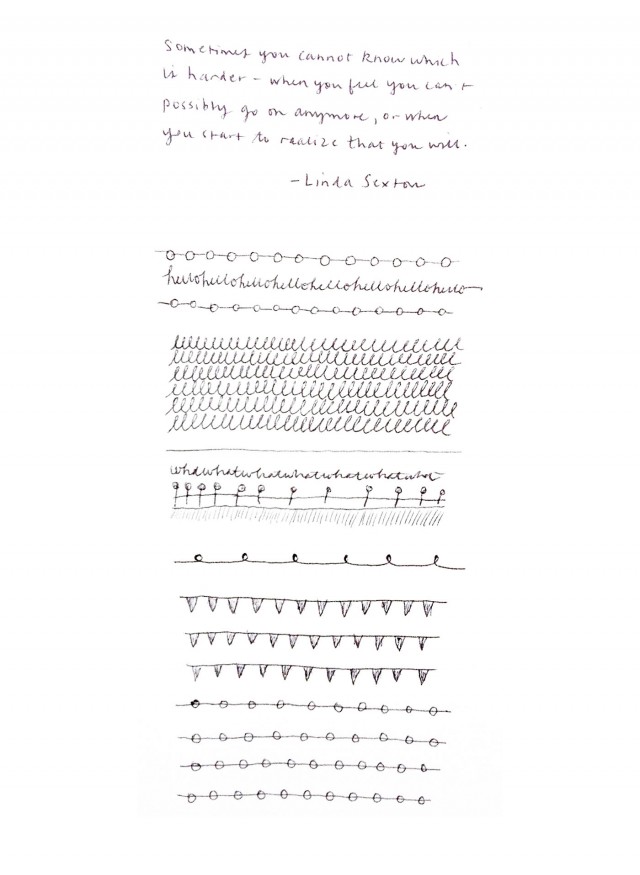 Sometimes you cannot know which
is harder - when you feel you can't
possibly go on anymore, or when
you start to realize that you will.
-Linda Sexton
hellohellohellohellohellohellohellohello
whatwhatwhatwhatwhatwhatwhat